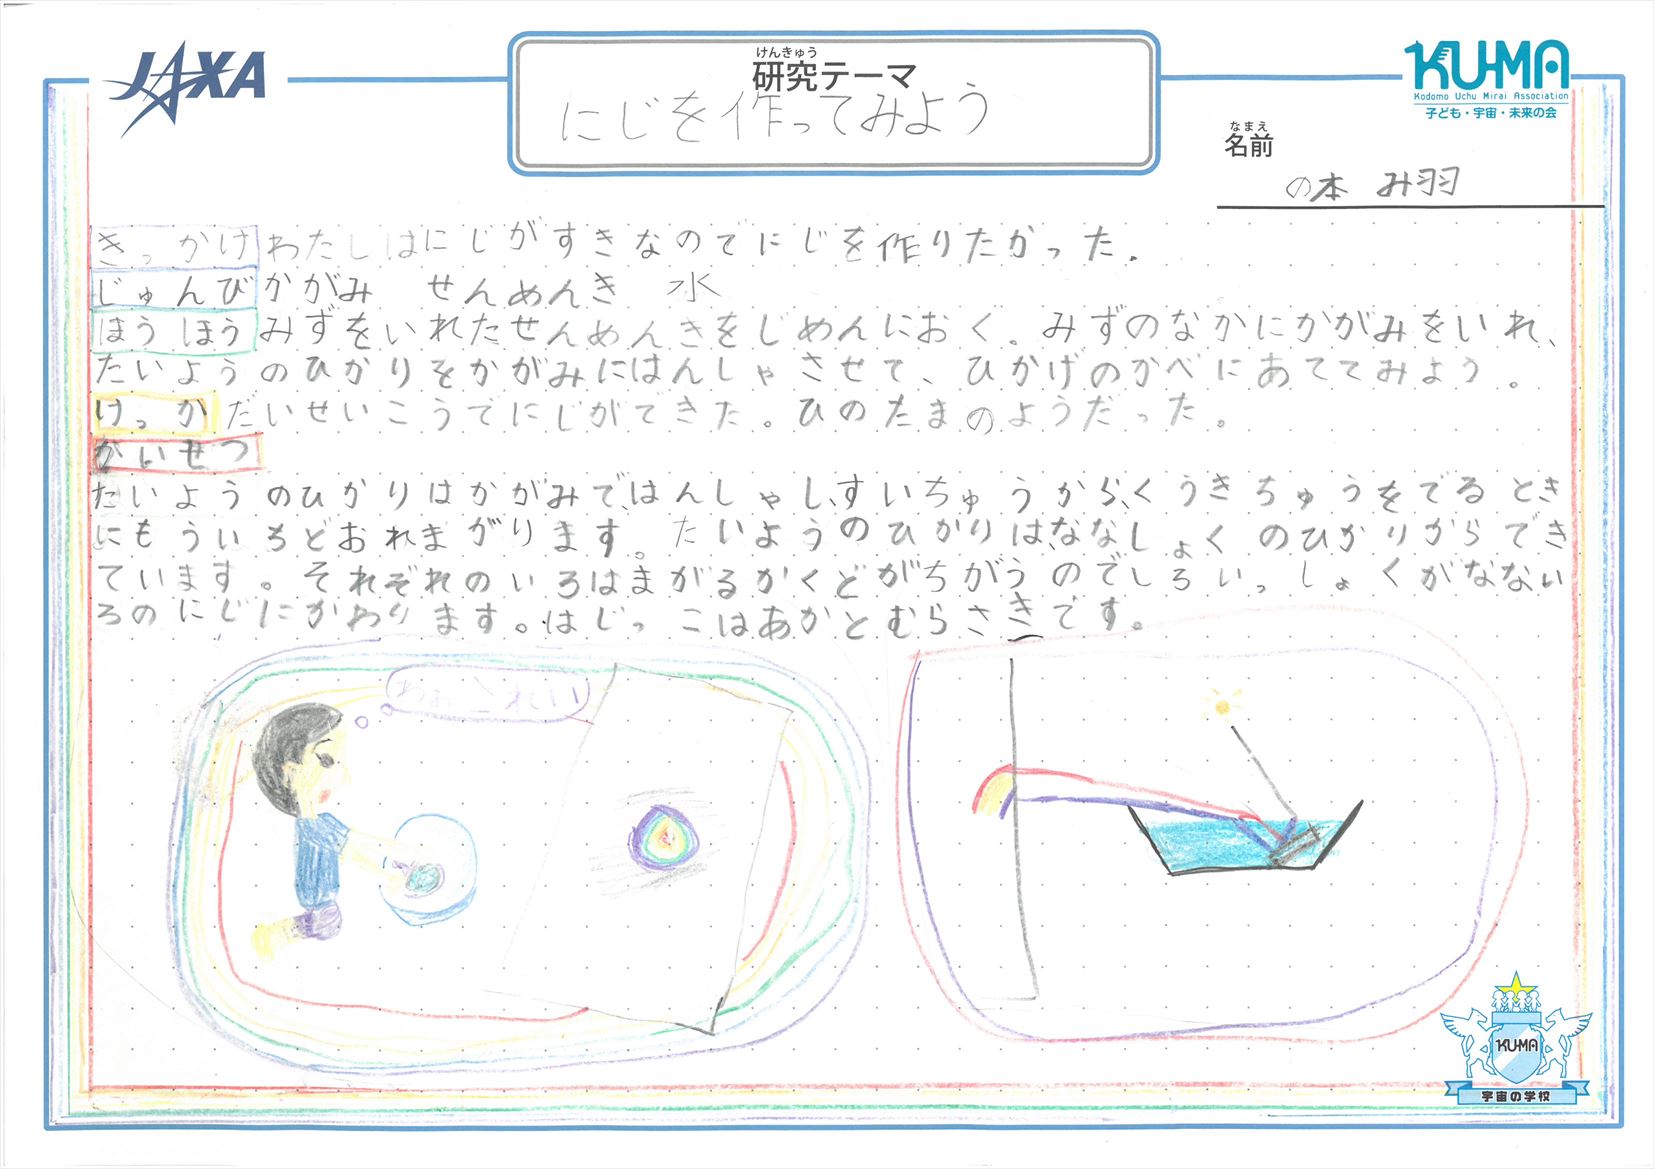 JAXA
けんきゅう
研究テーマ
にじを作ってみよう
KU-MA
Kodomo Uchu Mirai Association
子ども・宇宙・未来の会
なまえ
名前
の本 み羽
きっかけ わたしはにじがすきなのでにじを作りたかった.
じゅんび かがみ せんめんき 水
ほうほう みずをいれたせんめんきをじめんにおく。みずのなかにかがみをいれ、
たいようのひかりをかがみにはんしゃさせて、ひかげのかべにあててみよう。
けっか だいせいこうでにじができた。ひのたまのようだった。
かいせつ
たいようのひかりはかがみで、はんしゃし、すいちゅうから、くうきちゅうをでるとき
にもういちどおれまがります。たいようのひかりは、ななしょくのひかりからでき
ています。それぞれのいろはまがるかくどがちがうのでしろいっしょくがなない
ろのにじにかわります。はじっこはあかとむらさきです。
KU-MA
宇宙の学校